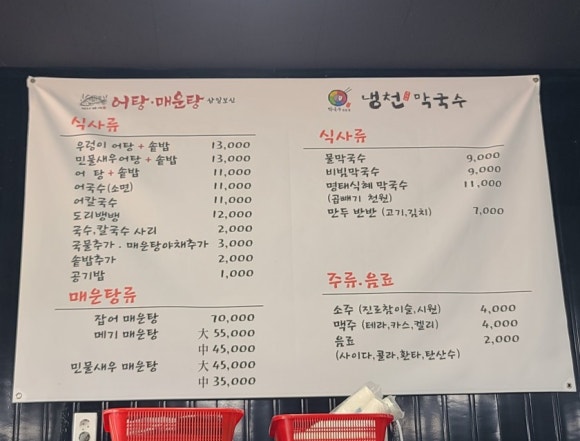 어탕·매운탕
식사류
우렁이 어탕 + 솥밥 13,000
민물새우어탕 + 솥밥 13,000
어 탕 + 솥밥 11,000
어국수(소면) 11,000
어칼국수 11,000
도리뱅뱅 12,000
국수,칼국수 사리 2,000
국물추가 . 매운탕야채추가 3,000
솥밥추가 2,000
공기밥 1,000
매운탕류
잡어 매운탕 70,000
메기 매운탕 大 55,000
中 45,000
민물새우 매운탕 大 45,000
中 35,000
냉천 막국수
식사류
물막국수 9,000
비빔막국수 9,000
명태식혜 막국수 11,000
(곱빼기 천원)
만두 반반 (고기,김치) 7,000
주류.음료
소주 (진로참이슬,시원) 4,000
맥주 (테라,카스,켈리) 4,000
음료 2,000
(사이다,콜라,환타,탄산수)